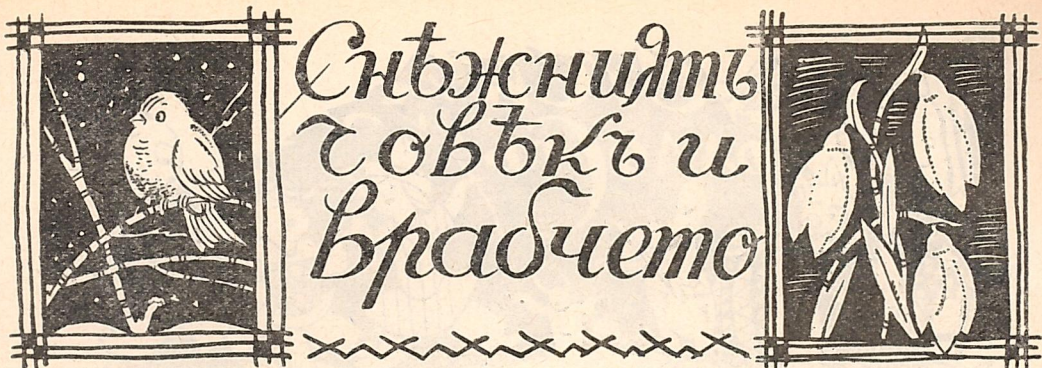 Снѣжниятъ
човѣкъ и
врабчето